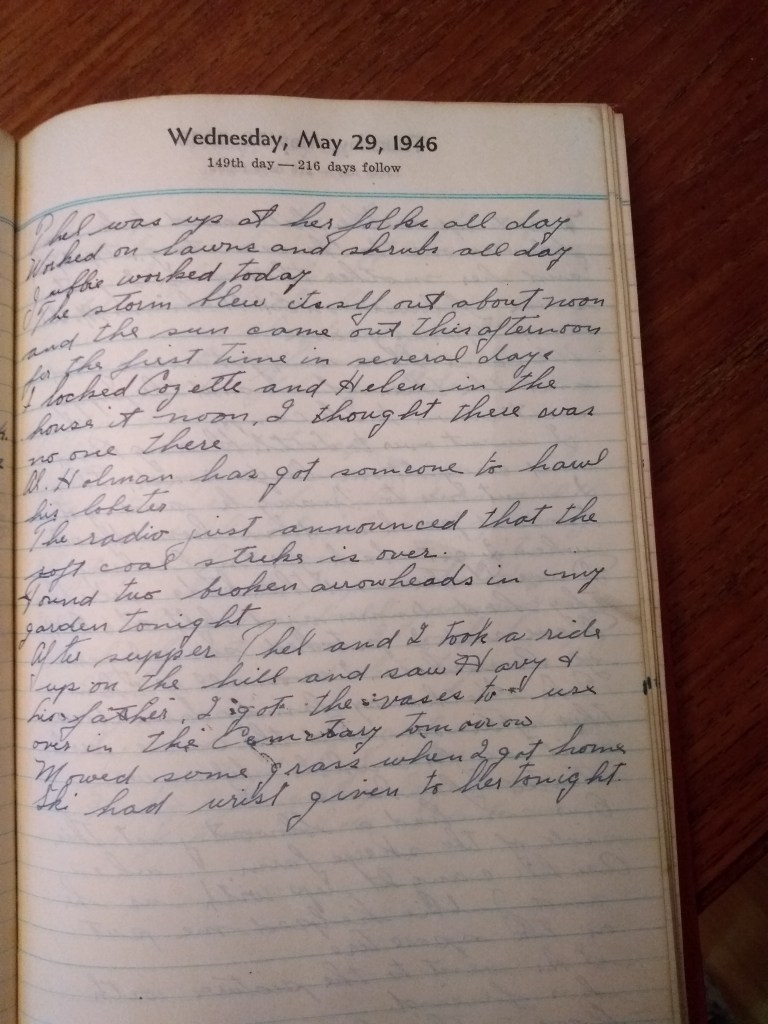 Wednesday, May 29, 1946
149th day — 216 days follow
Thel was up at her folks all day
Worked on lawns and shrubs all day
worked today
The storm blew itself out about noon
and the sun came out this afternoon
for the first time in several days
I locked Cozette and Helen in the
house at noon, I thought there was
no one there
Al. Holman has got someone to hawl
his lobster
The radio just announced that the
soft coal strike is over.
Found two broken arrowheads in my
garden tonight
After supper Thel and I took a ride
up on the hill and saw Harry &
his father, I got the vases to use
over in the Cemetary tomorrow
Mowed some grass when I got home
had given to her tonight.